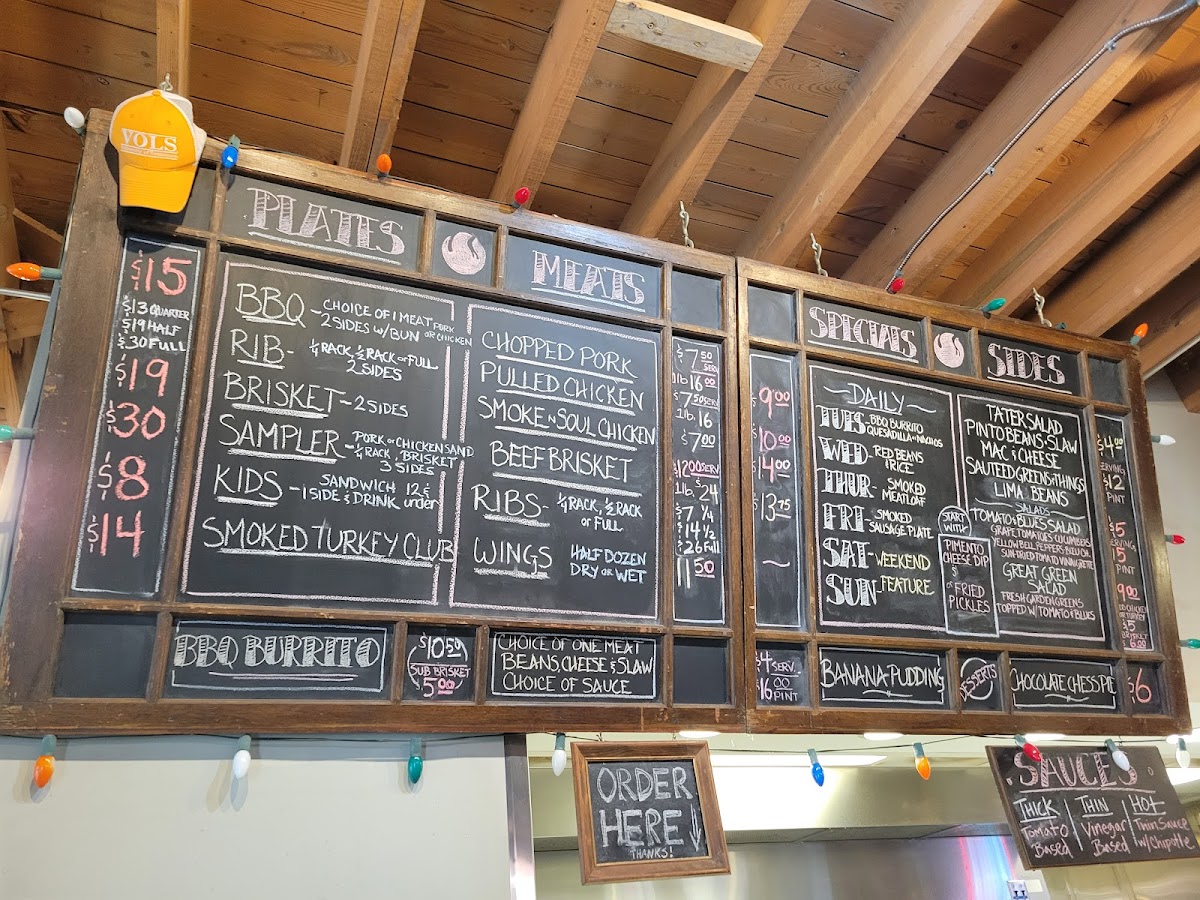 VOLS
PLATES
$15
$13 QUARTER
$19 HALF
$30 FULL
$19
$30
$8
$14
BBQ - CHOICE OF 1 MEAT PORK OR CHICKEN
2 SIDES W/ BUN
RIB - 1/4 RACK, 1/2 RACK OR FULL
2 SIDES
BRISKET - 2 SIDES
SAMPLER - PORK OR CHICKEN SAND
1/4 RACK, BRISKET
3 SIDES
KIDS - SANDWICH 12 &
1 SIDE & DRINK under
SMOKED TURKEY CLUB
MEATS
CHOPPED PORK
PULLED CHICKEN
SMOKE N SOUL CHICKEN
BEEF BRISKET
RIBS - 1/4 RACK, 1/2 RACK
OR FULL
WINGS HALF DOZEN
DRY OR WET
$7 50 SERV
1lb 16 00
$7 50 SERV
1lb. 16
$7 00
$12 00 SERV
1lb. $24
$7 1/4
$14 1/2
$26 Full
11 50
BBQ BURRITO
$10 50
SUB BRISKET
$5 00
CHOICE OF ONE MEAT
BEANS, CHEESE & SLAW
CHOICE OF SAUCE
SPECIALS
$9 00
$10 00
$14 00
$13.75
~
DAILY
TUES - BBQ BURRITO
QUESADILLA OR NACHOS
WED - RED BEANS
& RICE
THUR - SMOKED
MEATLOAF
FRI - SMOKED
SAUSAGE PLATE
SAT - WEEKEND
SUN - FEATURE
START
WITH
PIMENTO
CHEESE DIP
$
OR FRIED
PICKLES
SIDES
TATER SALAD
PINTO BEANS · SLAW
MAC & CHEESE
SAUTEED GREENS & THINGS
LIMA BEANS
SALADS
TOMATO & BLUES SALAD
GRAPE TOMATOES · CUCUMBERS
YELLOW BELL PEPPERS · BLEU · OIL
SUN-DRIED TOMATO VINAIGRETTE
GREAT GREEN
SALAD
FRESH GARDEN GREENS
TOPPED W/ TOMATO & BLUES
$4 00
SERVING
$12
PINT
$5
SERVING
5
PINT
9 00
ADD CHICKEN
OR TURKEY
$5
BRISKET
$6.00
$4 SERV.
00
$16 PINT
BANANA PUDDING
DESSERTS
CHOCOLATE CHESS PIE
$6
ORDER
HERE ↓
THANKS!
SAUCES
THICK THIN HOT
Tomato Vinegar Thin Sauce
Based Based w/ Chipotle